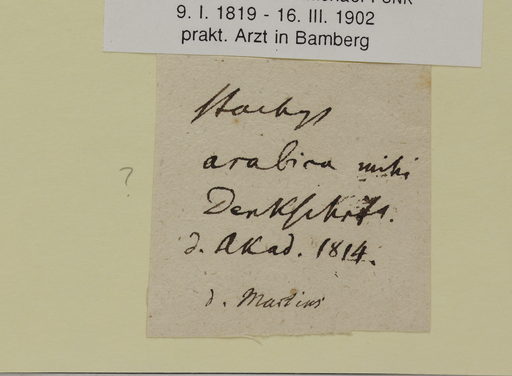 FUNK
9. I. 1819 - 16. III. 1902
prakt. Arzt in Bamberg
Stachys
arabica mihi
?
Denkschrft.
d. Akad. 1814.
d. Martius